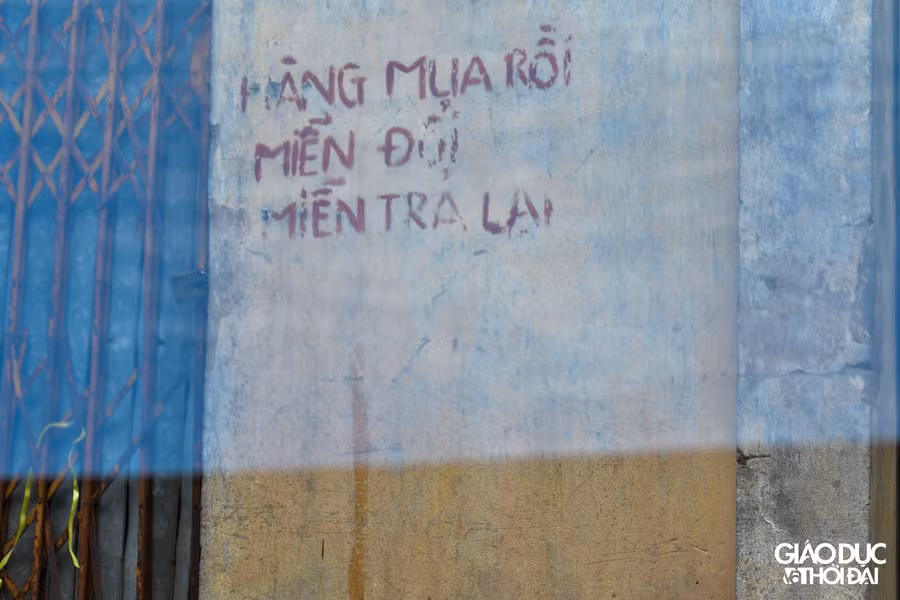 HÀNG MUA RỒI
MIỄN ĐỔI
MIỄN TRẢ LẠI
GIÁO DỤC
VÀ THỜI ĐẠI